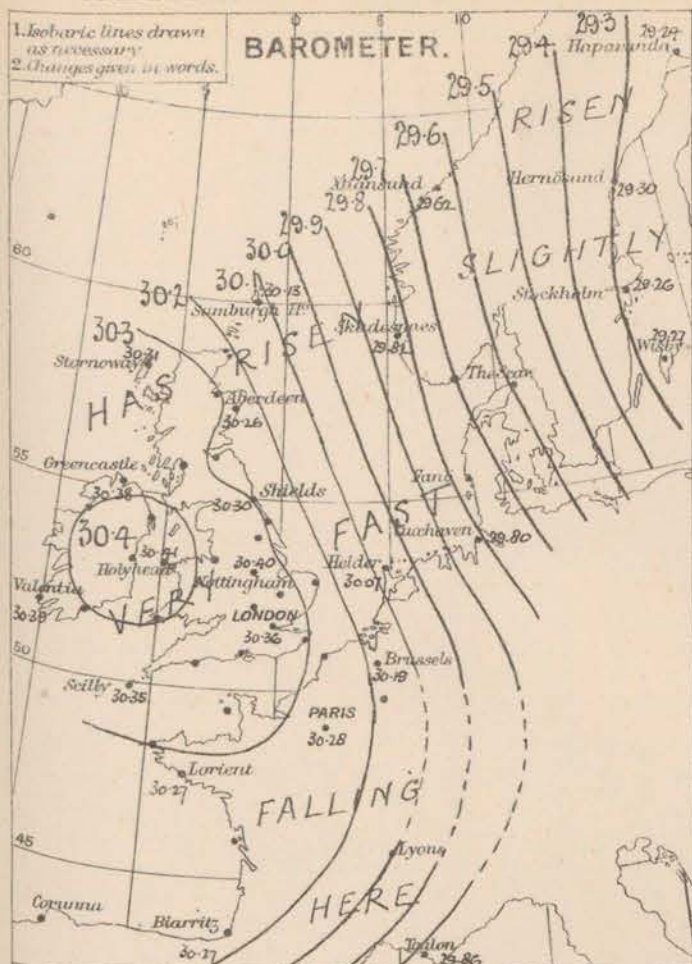 1. Isobaric lines drawn
as necessary
2. Changes given in words.
BAROMETER.
0
5
10
29·3
29·4
Haparanda
29·24
29·5
RISEN
29·6
29·7
Xtiansund
29·62
Hernösund
29·30
29·8
29·9
60
30·0
SLIGHTLY
30·1
30·13
30·2
Sumburgh Hd.
Stockholm
29·26
30·3
Skudesnaes
29·82
29·27
Wisby
Stornoway
30·31
RISEN
The Scaw
HAS
Aberdeen
30·26
55
Greencastle
30·38
Shields
30·30
Fanö
FAST
30·4
30·41
Holyhead
30·40
Nottingham
Cuxhaven
29·80
Helder
30·07
Valentia
30·39
VERY
LONDON
30·36
50
Brussels
30·19
Scilly
30·35
PARIS
30·28
Lorient
30·27
FALLING
45
Lyons
HERE
Corunna
Biarritz
30·27
Toulon
29·86